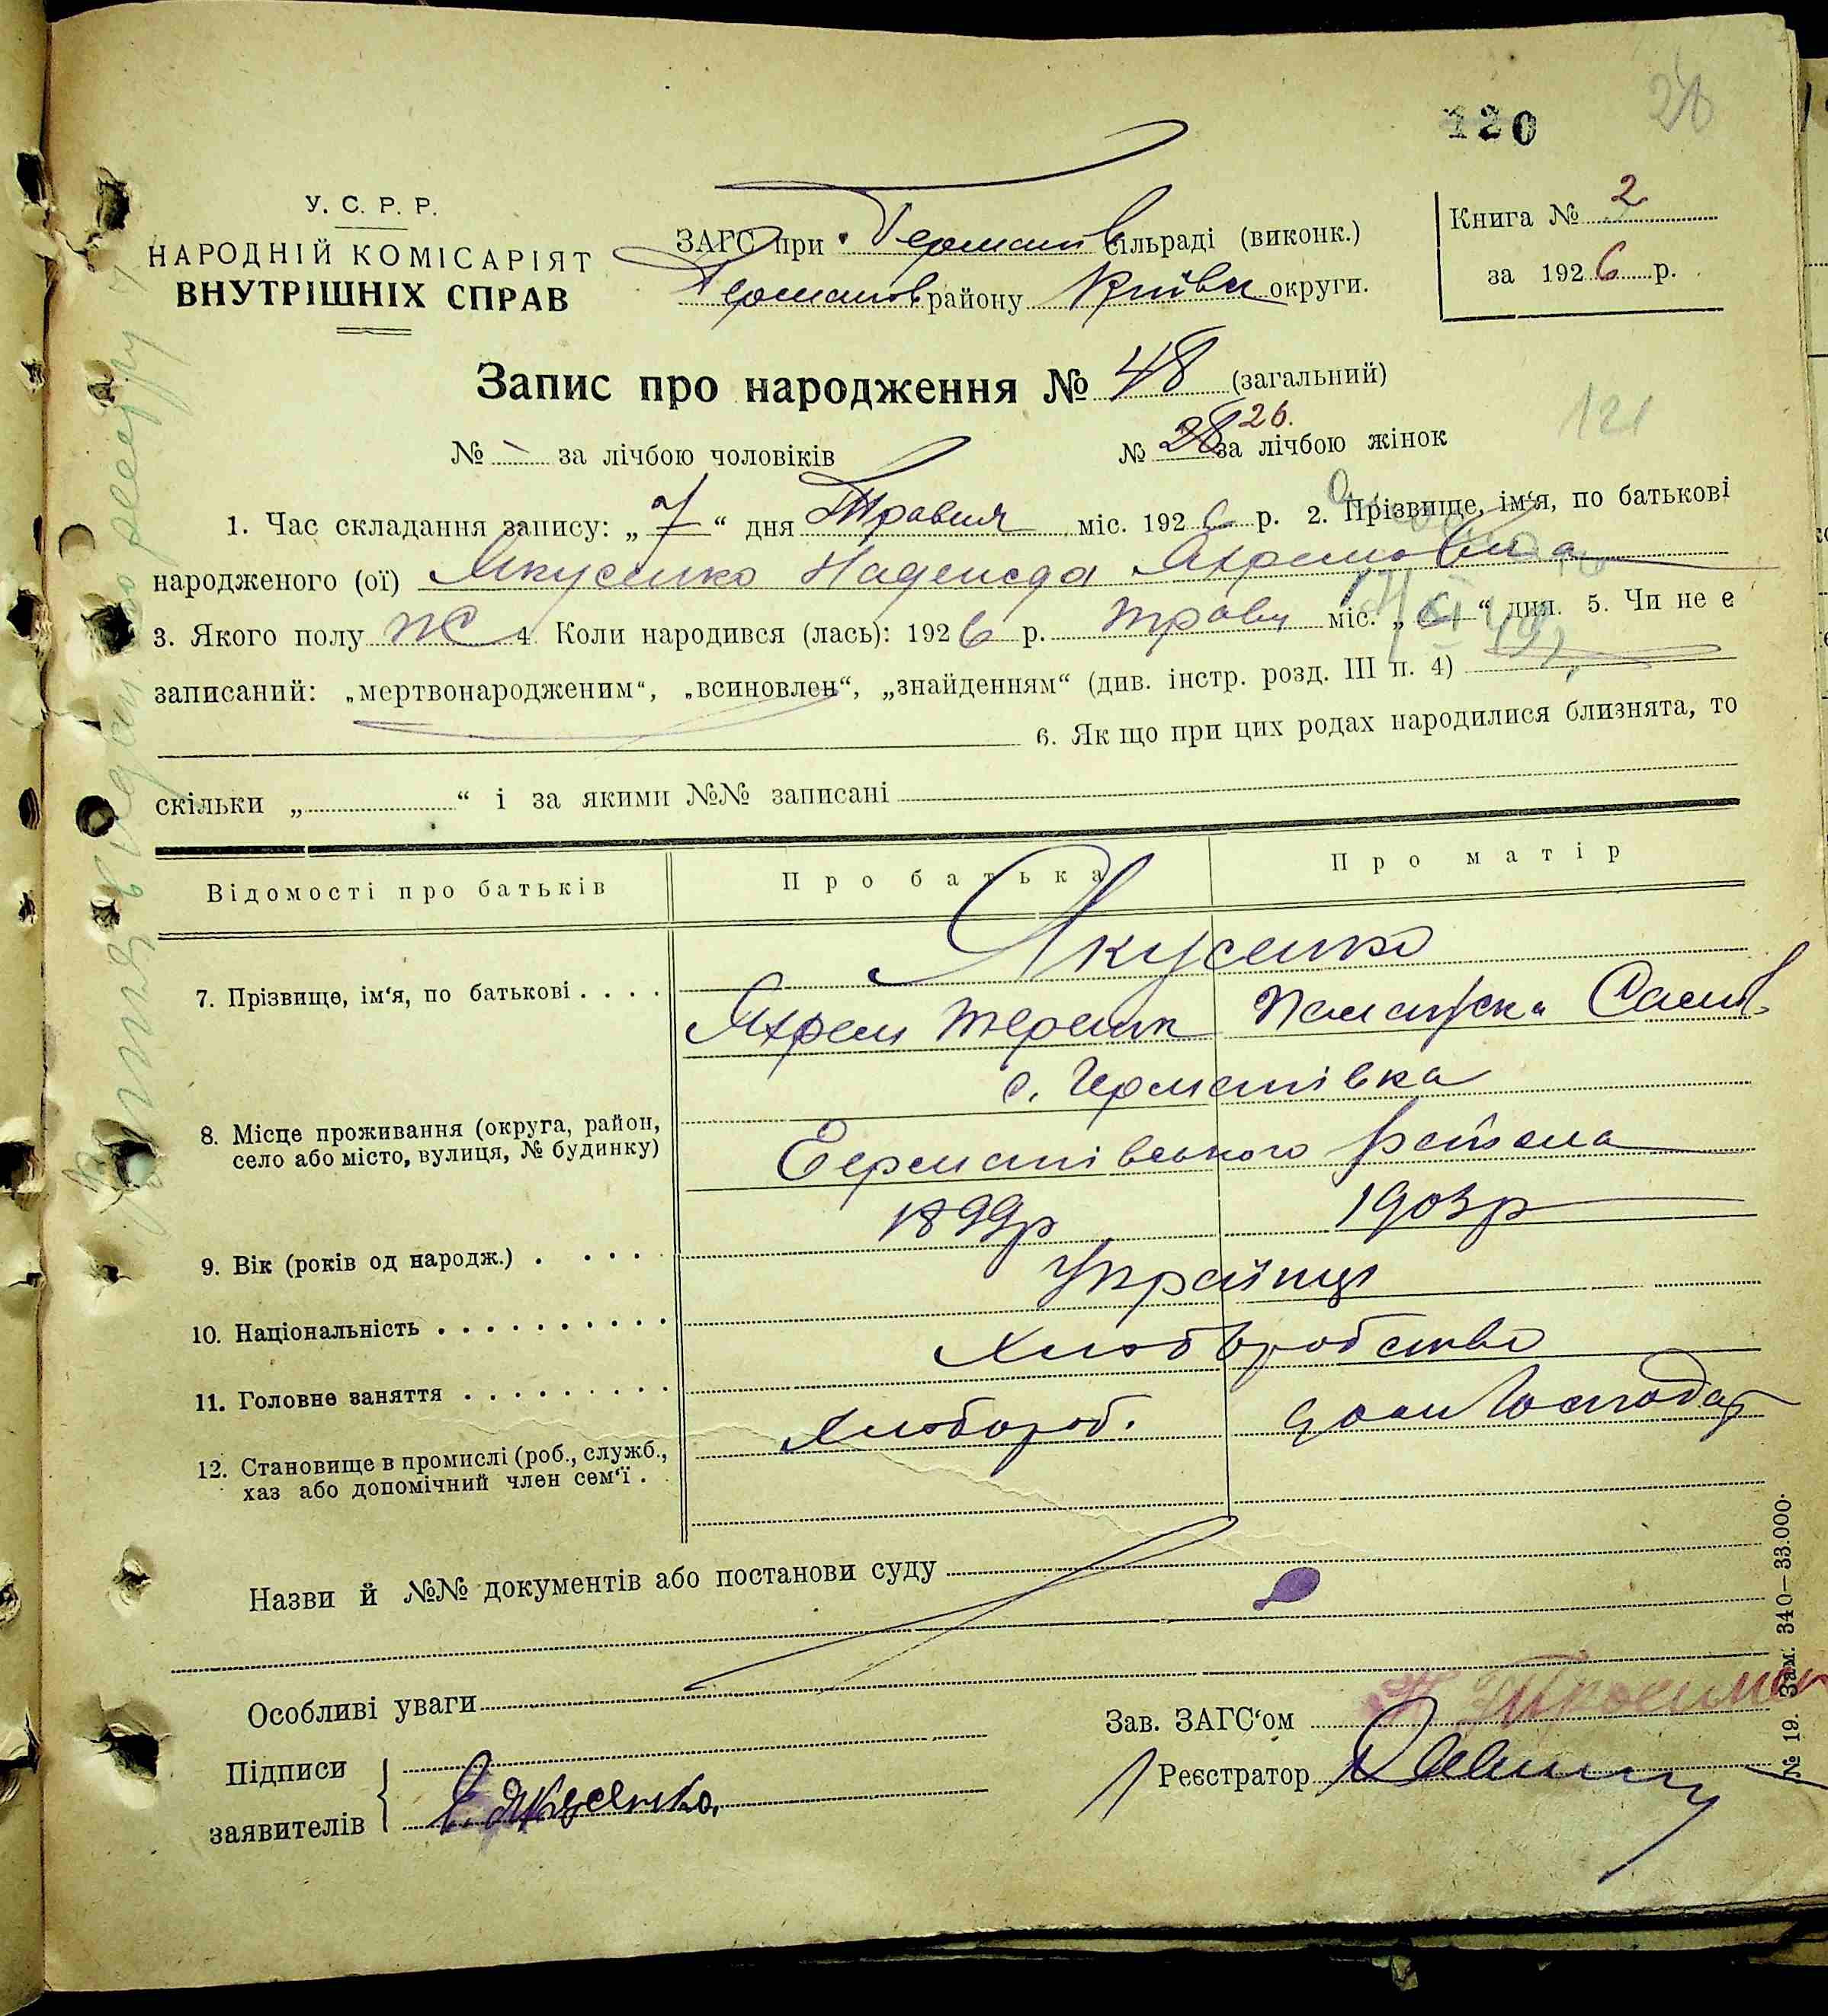 28
120
У. С. Р. Р.
НАРОДНІЙ КОМІСАРІЯТ
ВНУТРІШНІХ СПРАВ
ЗАГС при Германів сільраді (виконк.)
Германов району Київск округи.
Книга № 2
за 1926 р.
Запис про народження № 48 (загальний)
121
№ – за лічбою чоловіків № 28 26. за лічбою жінок
1. Час складання запису: „7“ дня Травня міс. 1926 р. 2. Прізвище, ім‘я, по батькові
народженого (ої) Якусенко Надежда Ахремовна
3. Якого полу ж 4. Коли народився (лась): 1926 р. травн міс. „6“ дня. 5. Чи не є
записаний: „мертвонародженим“, „всиновлен“, „знайденням“ (див. інстр. розд. III п. 4)
6. Як що при цих родах народилися близнята, то
скільки „ “ і за якими №№ записані
Відомості про батьків Про батька Про матір
Якусенко
7. Прізвище, ім‘я, по батькові . . . .
Ахрем
с. Германівка
8. Місце проживання (округа, район,
село або місто, вулиця, № будинку)
Германівського района
9. Вік (років од народж.) . . . . . 1899р 1903р
10. Національність . . . . . . . . . . Українці
11. Головне заняття . . . . . . . . . Хліборобство
12. Становище в промислі (роб., служб.,
хаз або допомічний член сем‘ї .
Хлібороб. дом господар
Назви й №№ документів або постанови суду
Особливі уваги
Зав. ЗАГС‘ом
Підписи
заявителів
Якусенко
Реєстратор
№ 19. Зам. 340—33.000.